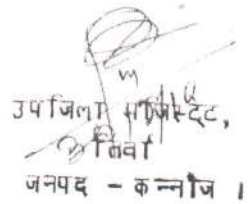 उपजिला मजिस्ट्रेट,
तिर्वा
जनपद - कन्नौज ।